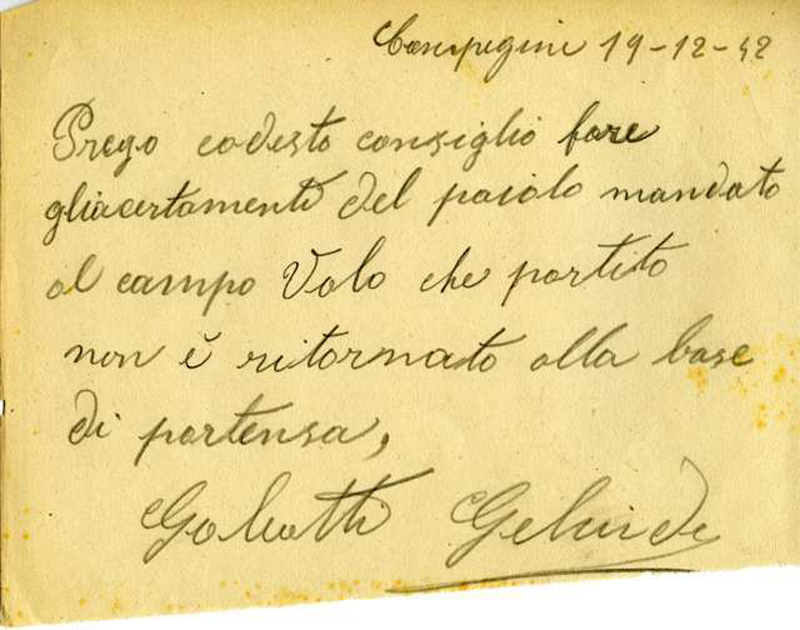 Campegine 19-12-42
Prego codesto consiglio fare
gliacertamenti del paiolo mandato
al campo Volo che partito
non è ritornato alla base
di partensa,